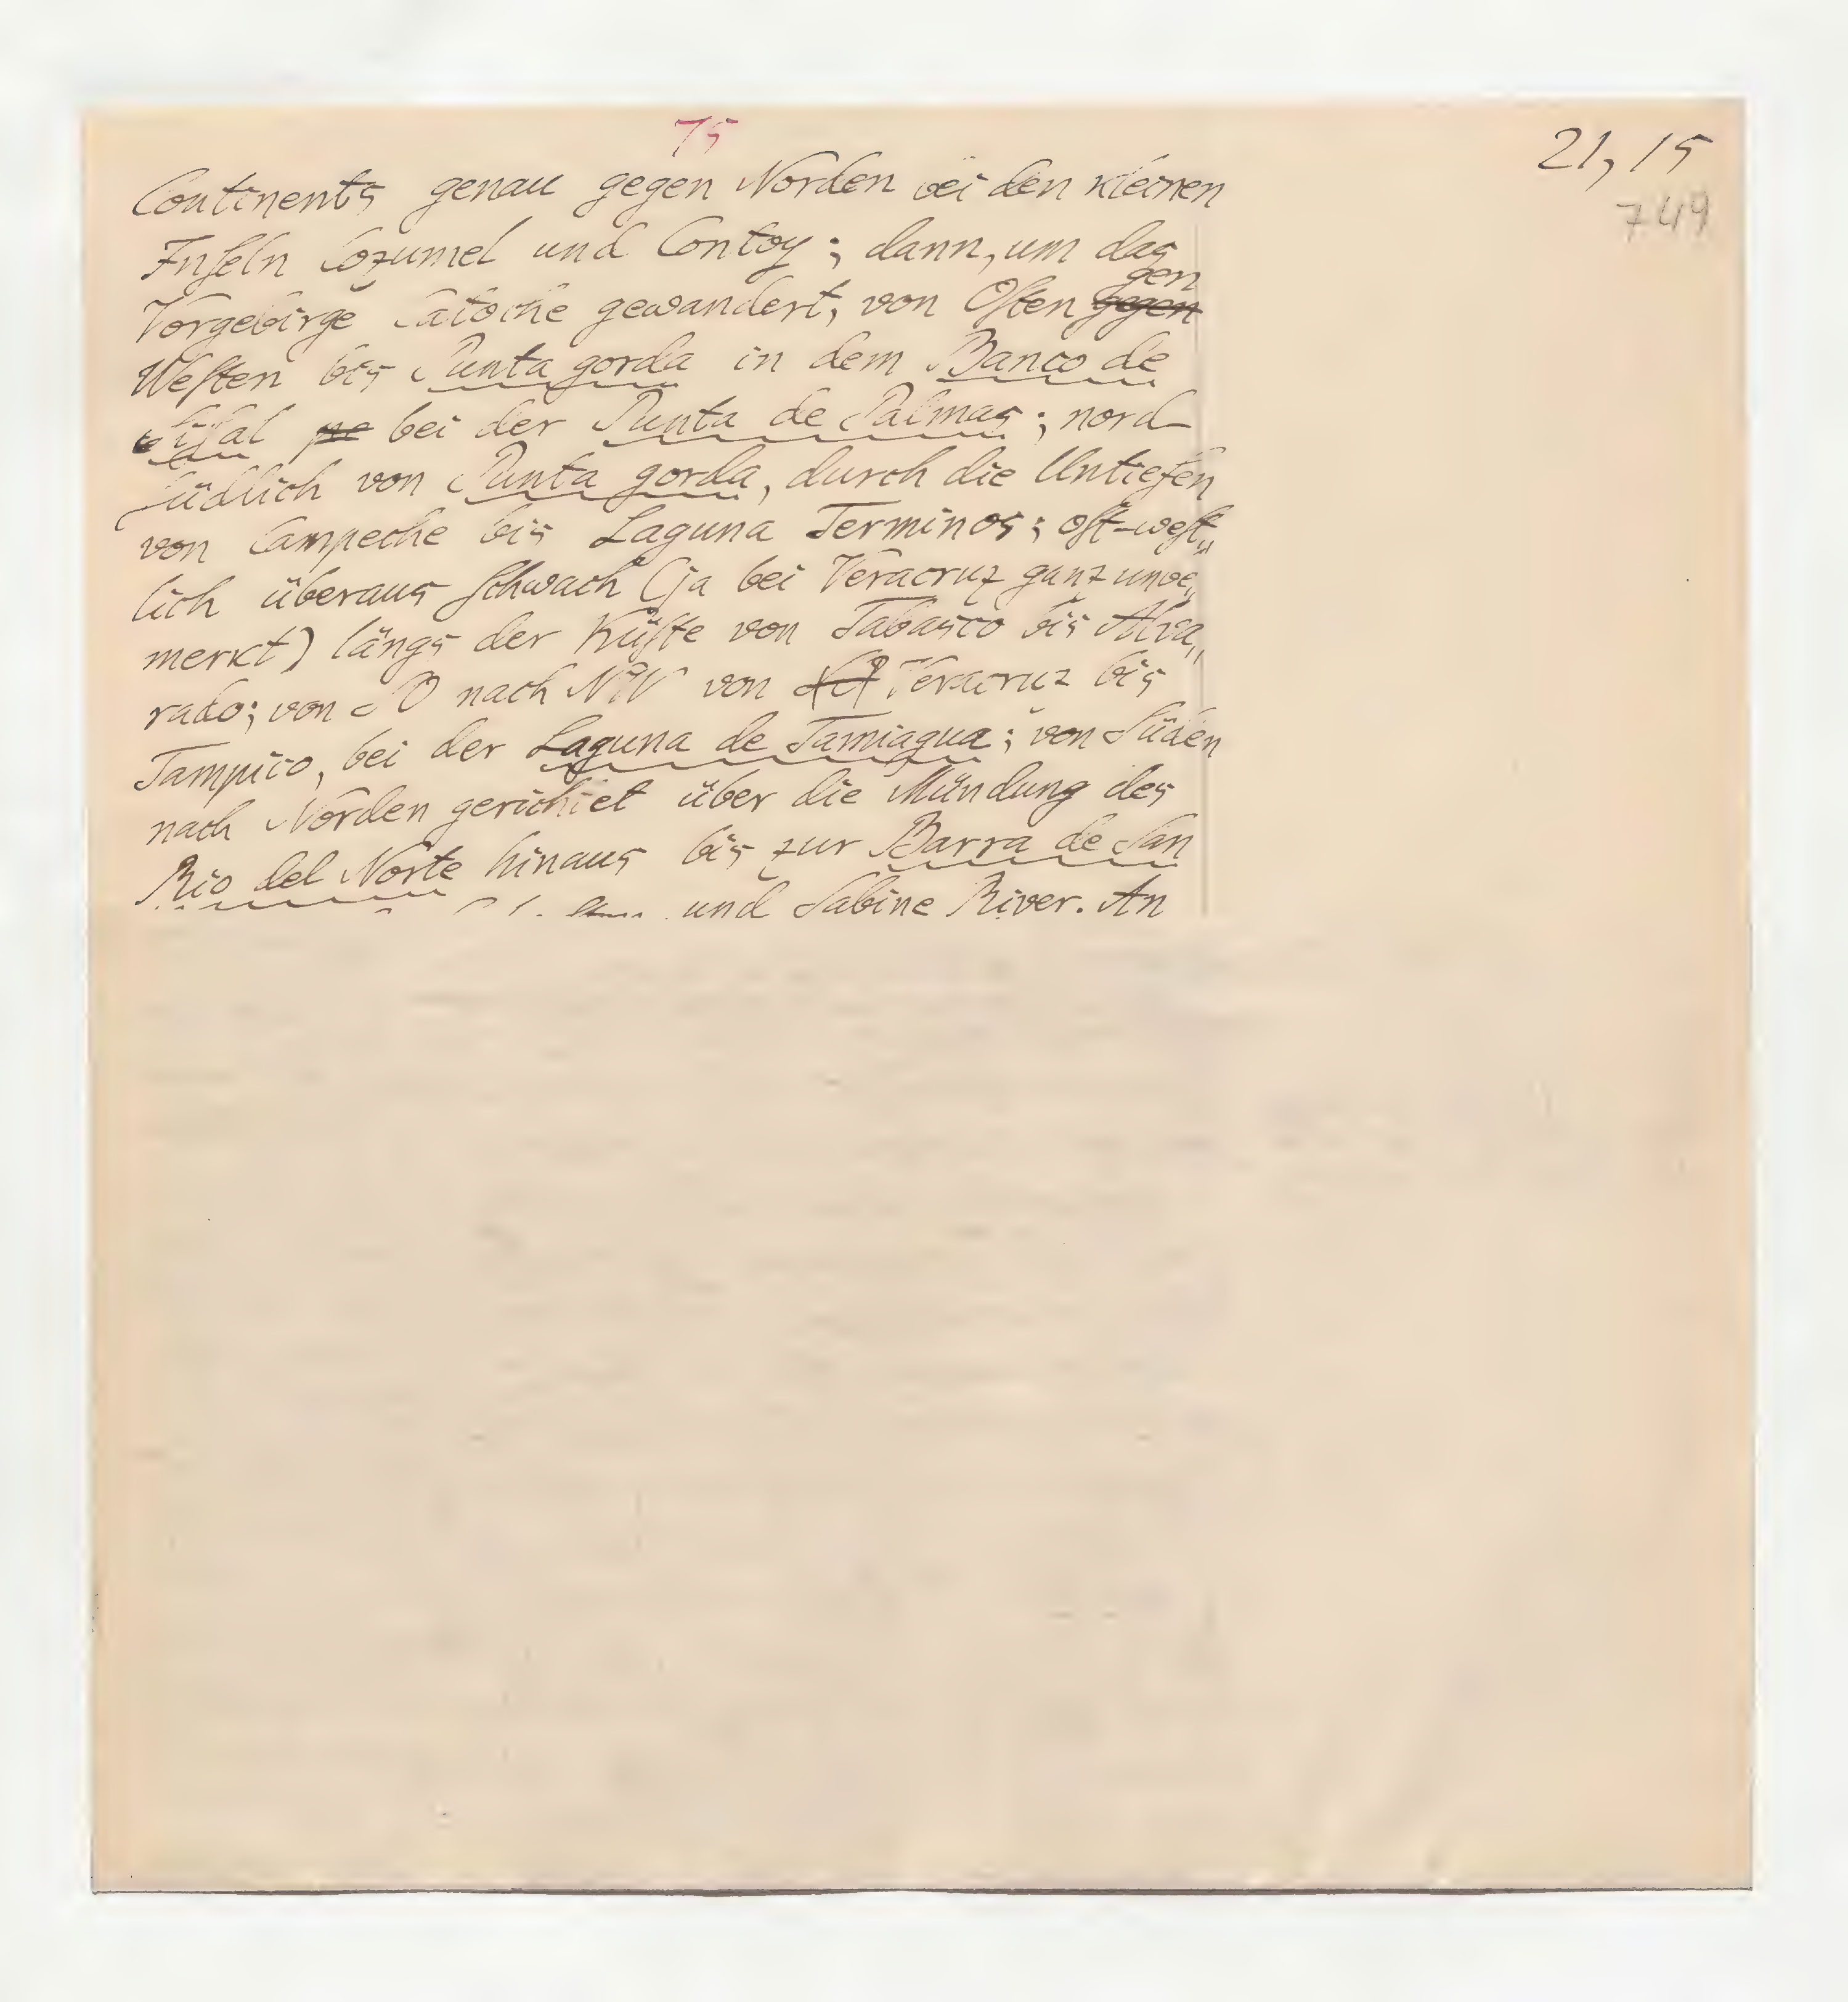 75
21, 15
749
Continents genau gegen Norden bei den kleinen
Inſeln Cozumel und Contoy; dann, um das
gen
Vorgebirge Catoche gewandert, von Oſten gegen
Weſten bis Punta gorda in dem Banco de
Siſal pe bei der Punta de Palmas; nord-
ſüdlich von Punta gorda, durch die Untiefen
von Campeche bis Laguna Terminos; oſt-weſt„
lich überaus ſchwach (ja bei Veracruz ganz unbe„
merkt) längs der Küſte von Tabasco bis Alva„
rado; von SO nach NW von Veracruz bis
Tampico, bei der Laguna de Tamiagua; von Süden
nach Norden gerichtet über die Mündung des
Rio del Norte hinaus bis zur Barra de San
und Sabine River. An